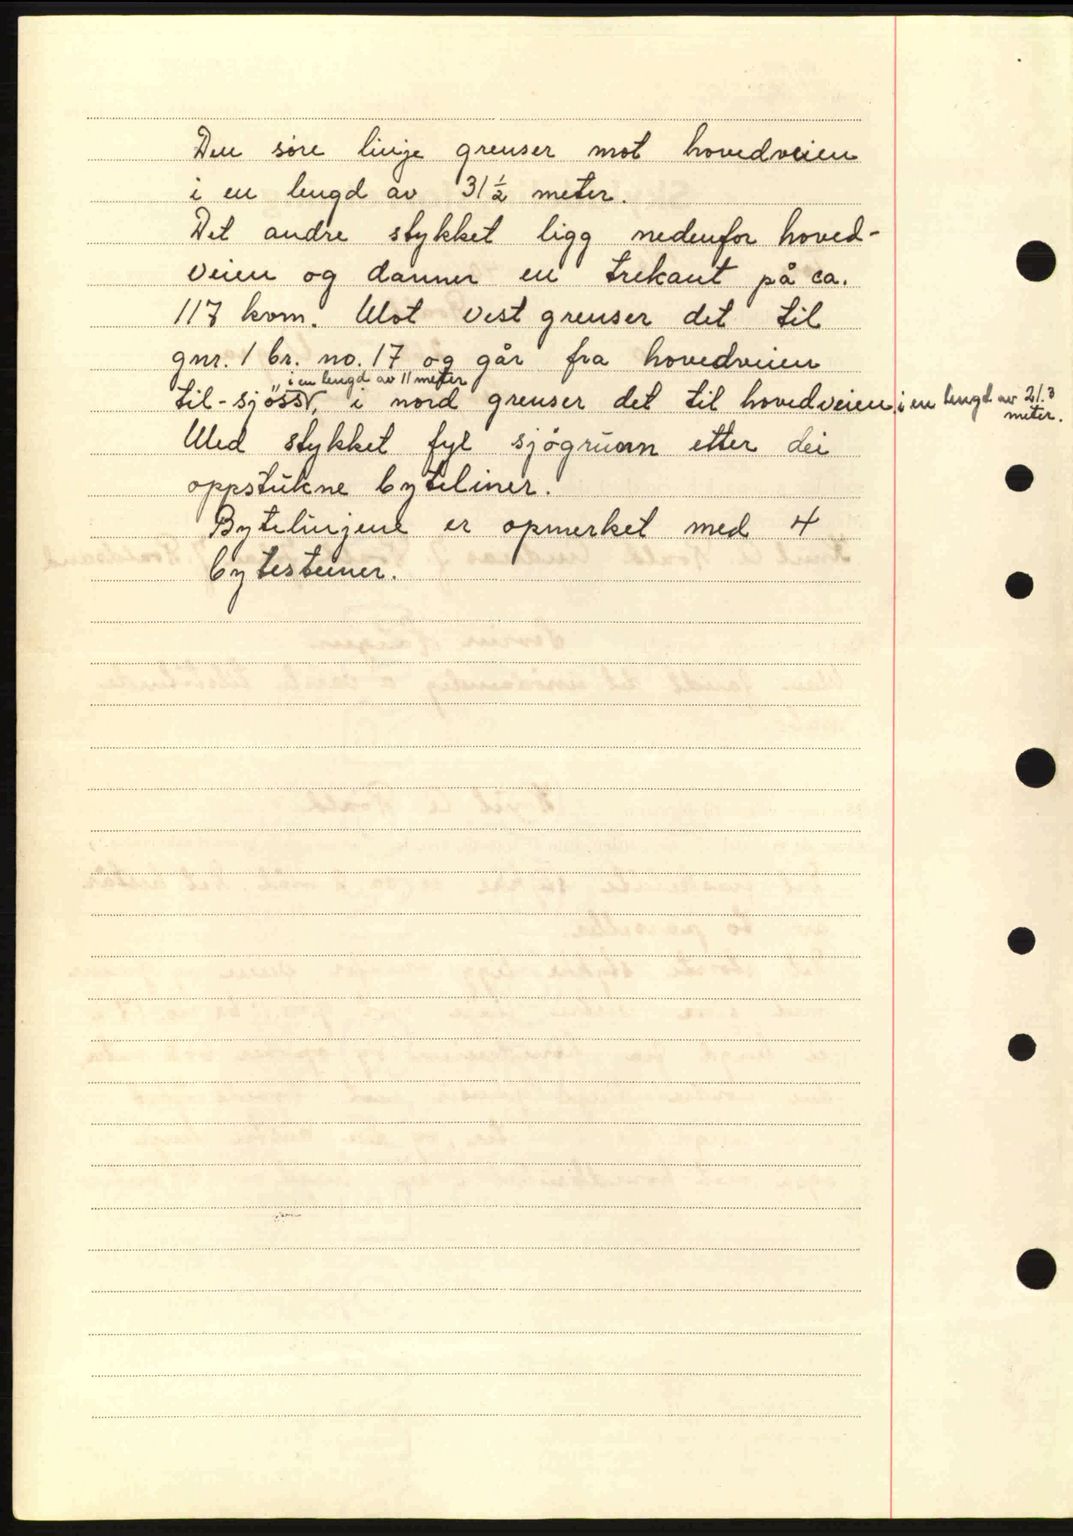 Den søre linje grenser mot hovedveien
i en lengd av 31 ½ meter.
Det andre stykket ligg nedenfor hoved-
veien og danner en trekant på ca.
117 kvm. Mot vest grenser det til
gnr. 1 br. no. 17 og går fra hovedveien
i en lengd av 11 meter
til-sjöss, i nord grenser det til hovedveien i en lengd av 21.3
meter.
Med stykket fyl sjögrunn etter dei
oppstukne byteliner.
Bytelinjene er opmerket med 4
bytesteiner.